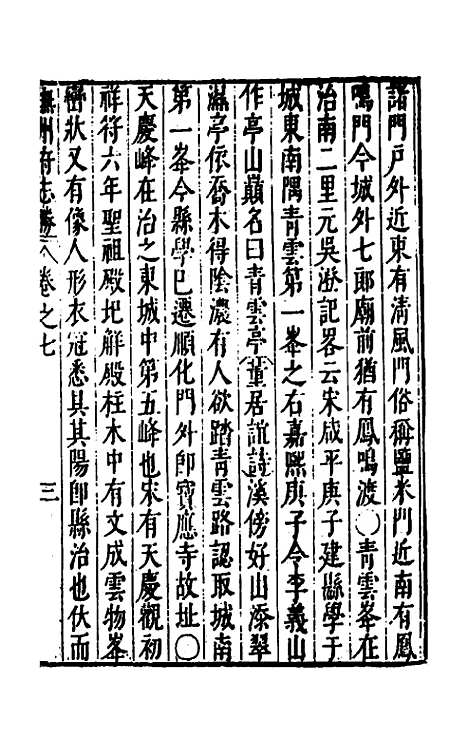 諸門戶外近東有清風門俗稱鹽米門近南有鳳
鳴門今城外七郎廟前猶有鳳鳴渡〇青雲峯在
治南二里元吳澄記畧云宋咸平庚子建縣學于
城東南隅青雲第一峯之右嘉熙庚子令李義山
作亭山巔名曰青雲亭董居誼詩溪傍好山添翠
濕亭依喬木得陰濃有人欲踏青雲路認取城南
第一峯今縣學已遷順化門外卽寶應寺故址〇
天慶峰在治之東城中第五峰也宋有天慶觀初
祥符六年聖祖殿圯解殿柱木中有文成雲物峯
巒狀又有像人形衣冠悉具其陽卽縣治也伏而
撫州府志勝 卷之七 三